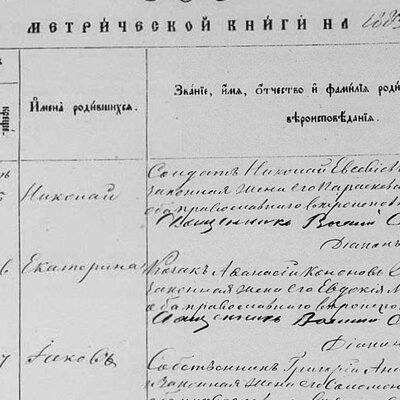 МЕТРИЧЕСКОЙ КНИГИ НА 188
Имена родившихся.
Званіе, имя, отчество и фамилія роди
вѣроисповѣданія.
Солдатъ Николай Евсевіев
законная жена его Параскева
оба православнаго
Николай
Священникъ
Діаконъ
Екатерина
Козакъ Аѳанасій Кононовъ
законная жена его Евдокія М
оба православнаго
Священникъ
Діаконъ
Іаковъ
Собственникъ Григорій
законная жена его Соломон